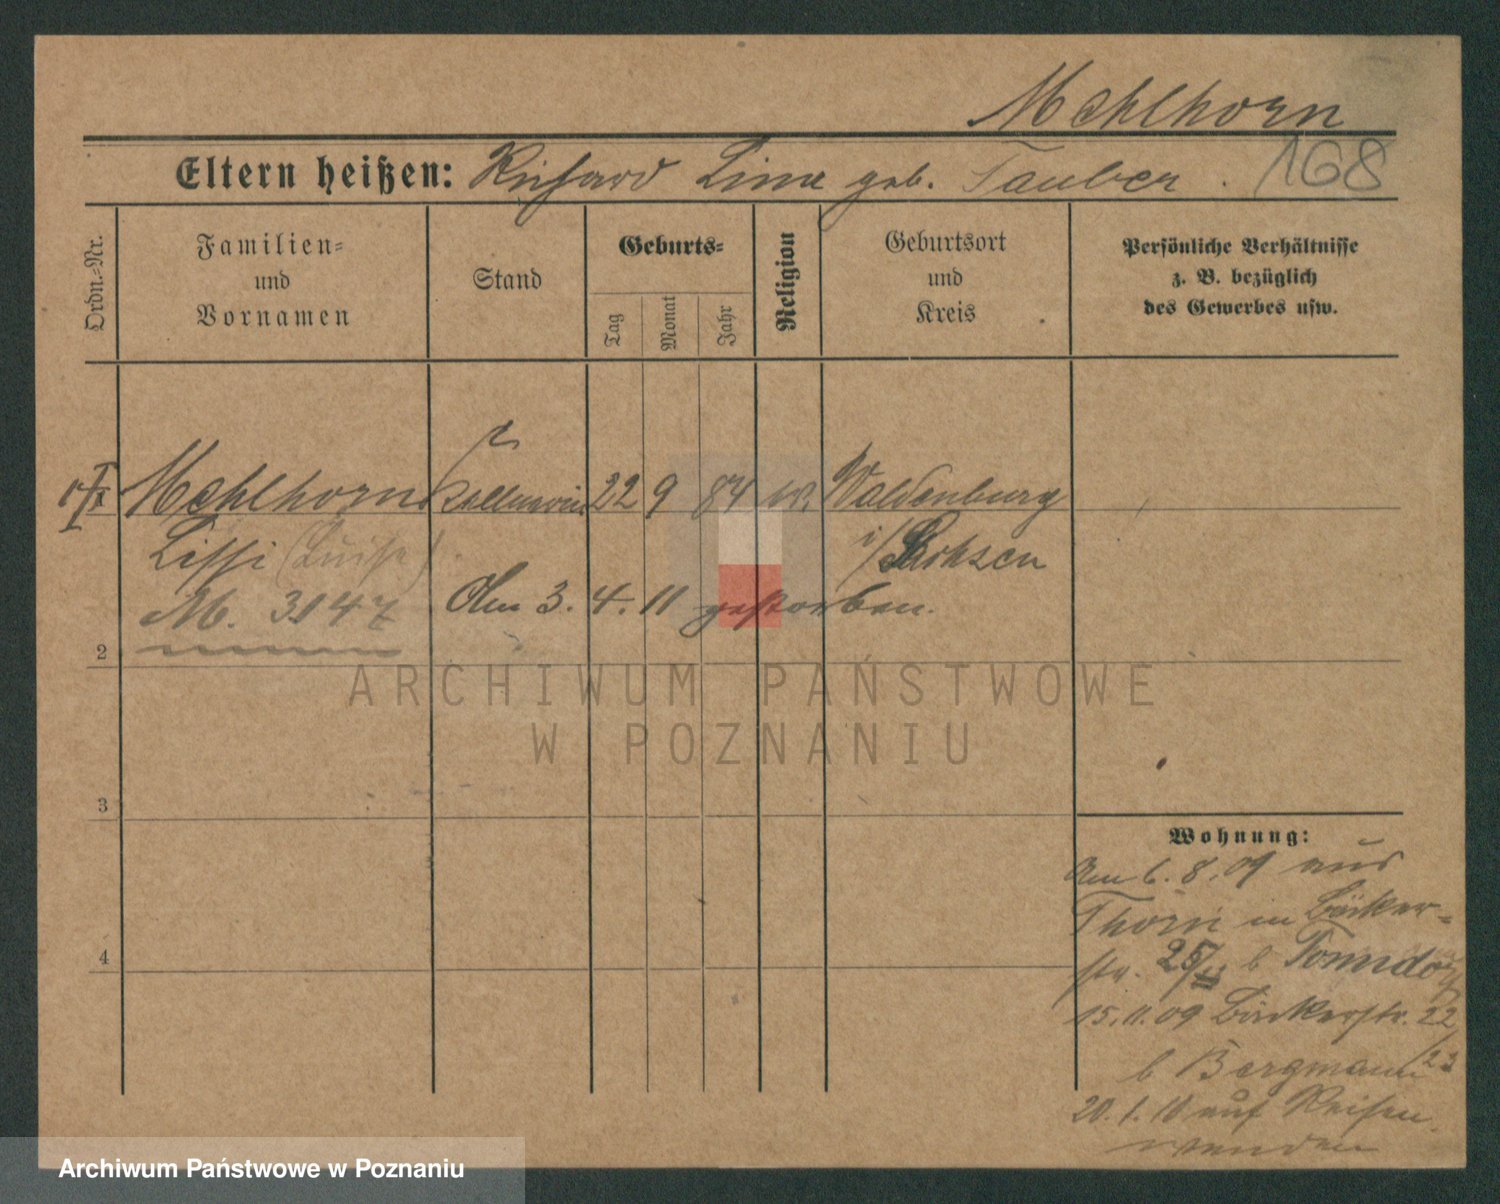 Mehlhorn
Eltern heißen: Richard Lina geb. Tauber. 168
Ordn.-Nr.
Familien- und Vornamen
Stand
Geburts-
Tag
Monat
Jahr
Religion
Geburtsort und Kreis
Persönliche Verhältnisse z. B. bezüglich des Gewerbes usw.
1 Mehlhorn Kellnerin 22 9 84 Waldenburg
Lissi (Luise) i/Sachsen
M. 3147 Am 3. 4. 11 gestorben.
2
3
4
Wohnung:
Am 6. 8. 09 aus
Thorn in Bäcker-
str. 25 b
15. 11. 09 Bäckerstr. 22/
23
b Bergmann
20. 1. 10 auf Reisen
ARCHIWUM PAŃSTWOWE
W POZNANIU
Archiwum Państwowe w Poznaniu